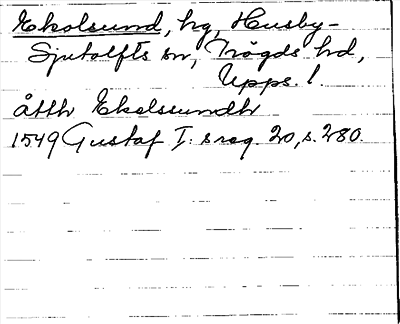 Ekolsund, hg, Husby-
Sjutolfts sn, Trögds hd,
Upps. l.
åtth Ekolssundh
1549 Gustaf I:s reg. 20, s. 280.